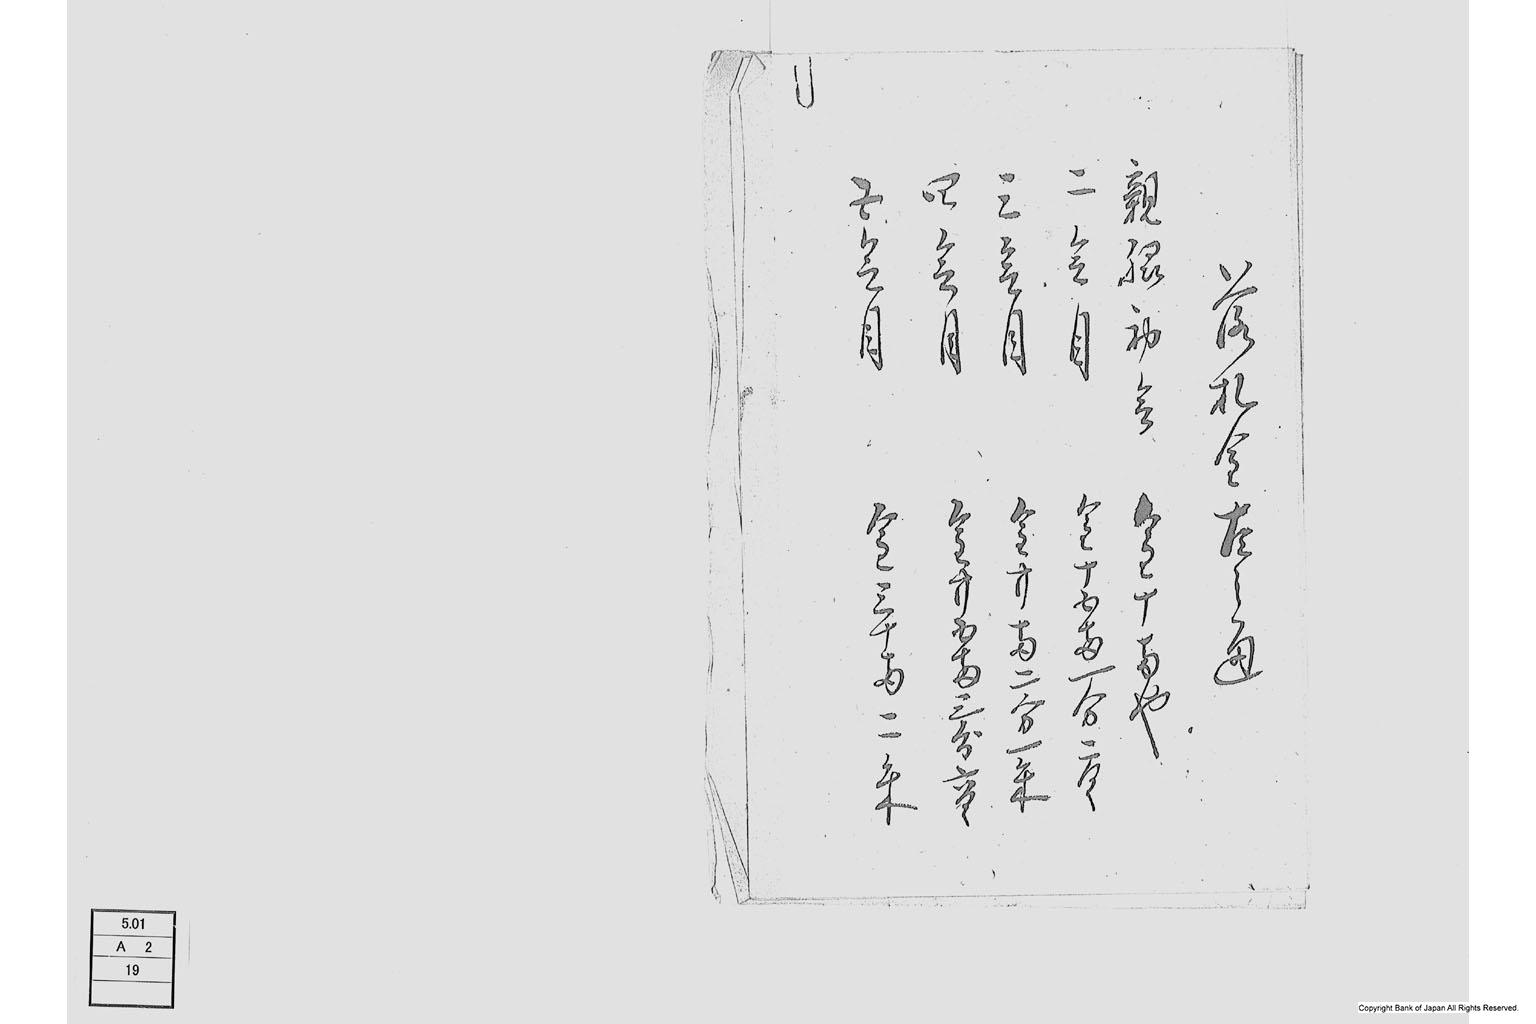 落札金左之通
親 初会 金十両也
二会目 金十五両一分
三会目 金廿両二分一朱
四会目 金廿五両三分
五会目 金三十両二朱
5.01
A 2
19
Copyright Bank of Japan All Rights Reserved.